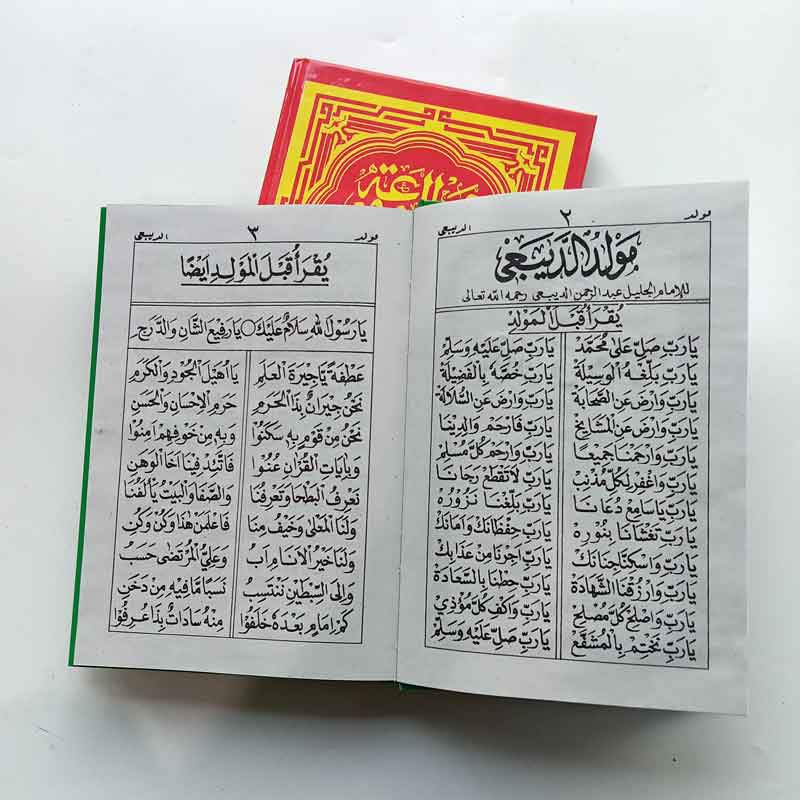 مولد ٢ الديبعى
مَوْلِدُ الدَّيْبَعِى
للامام الجليل عبد الرحمن الديبعى رحمه الله تعالى
يُقْرَأُ قَبْلَ الْمَوْلِدِ
يَارَبِّ صَلِّ عَلٰى مُحَمَّدْ يَارَبِّ صَلِّ عَلَيْهِ وَسَلِّمْ
يَارَبِّ بَلِّغْهُ الْوَسِيْلَةْ يَارَبِّ خُصَّهْ بِالْفَضِيْلَةْ
يَارَبِّ وَارْضَ عَنِ الصَّحَابَةْ يَارَبِّ وَارْضَ عَنِ السُّلَالَةْ
يَارَبِّ وَارْضَ عَنِ الْمَشَايِخْ يَارَبِّ فَارْحَمْ وَالِدِيْنَا
يَارَبِّ وَارْحَمْنَا جَمِيْعًا يَارَبِّ وَارْحَمْ كُلَّ مُسْلِمْ
يَارَبِّ وَاغْفِرْ لِكُلِّ مُذْنِبْ يَارَبِّ لَاتَقْطَعْ رَجَانَا
يَارَبِّ يَاسَامِعْ دُعَانَا يَارَبِّ بَلِّغْنَا نَزُوْرُهْ
يَارَبِّ تَغْشَانَا بِنُوْرِهْ يَارَبِّ حِفْظَانَكْ وَامَانَكْ
يَارَبِّ وَاسْكِنَّا جِنَانَكْ يَارَبِّ اَجِرْنَا مِنْ عَذَابِكْ
يَارَبِّ وَارْزُقْنَا الشَّهَادَةْ يَارَبِّ حِطْنَا بِالسَّعَادَةْ
يَارَبِّ وَاصْلِحْ كُلَّ مُصْلِحْ يَارَبِّ وَاكْفِ كُلَّ مُؤْذِيْ
يَارَبِّ نَخْتِمْ بِالْمُشَفَّعْ يَارَبِّ صَلِّ عَلَيْهِ وَسَلِّمْ
مولد ٣ الديبعى
يُقْرَأُ قَبْلَ الْمَوْلِدِ اَيْضًا
يَارَسُوْلَ اللهِ سَلَامٌ عَلَيْكَ ○ يَارَفِيْعَ الشَّانِ وَالدَّرَجِ
عَطْفَةً يَّاجِيْرَةَ الْعَلَمِ يَااُهَيْلَ الْجُوْدِ وَالْكَرَمِ
نَحْنُ جِيْرَانٌ بِذَا الْحَرَمِ حَرَمِ الْاِحْسَانِ وَالْحَسَنِ
نَحْنُ مِنْ قَوْمٍ بِهِ سَكَنُوْا وَبِهِ مِنْ خَوْفِهِمْ اٰمِنُوْا
وَبِاٰيَاتِ الْقُرْاٰنِ عُنُوْا فَاتَّئِدْ فِيْنَا اَخَا الْوَهَنِ
نَعْرِفُ الْبَطْحَا وَتَعْرِفُنَا وَالصَّفَا وَالْبَيْتُ يَأْلَفُنَا
وَلَنَا الْمَعْلٰى وَخَيْفُ مِنَا فَاعْلَمَنْ هٰذَا وَكُنْ وَكُنِ
وَلَنَا خَيْرُ الْاَنَامِ اَبُ وَعَلِيُّ الْمُرْتَضٰى حَسَبُ
وَاِلَى السِّبْطَيْنِ نَنْتَسِبُ نَسَبًا مَّا فِيْهِ مِنْ دَخَنِ
كَمْ اِمَامٍ بَعْدَهُ خَلَفُوْا مِنْهُ سَادَاتٌ بِذَا عُرِفُوْا